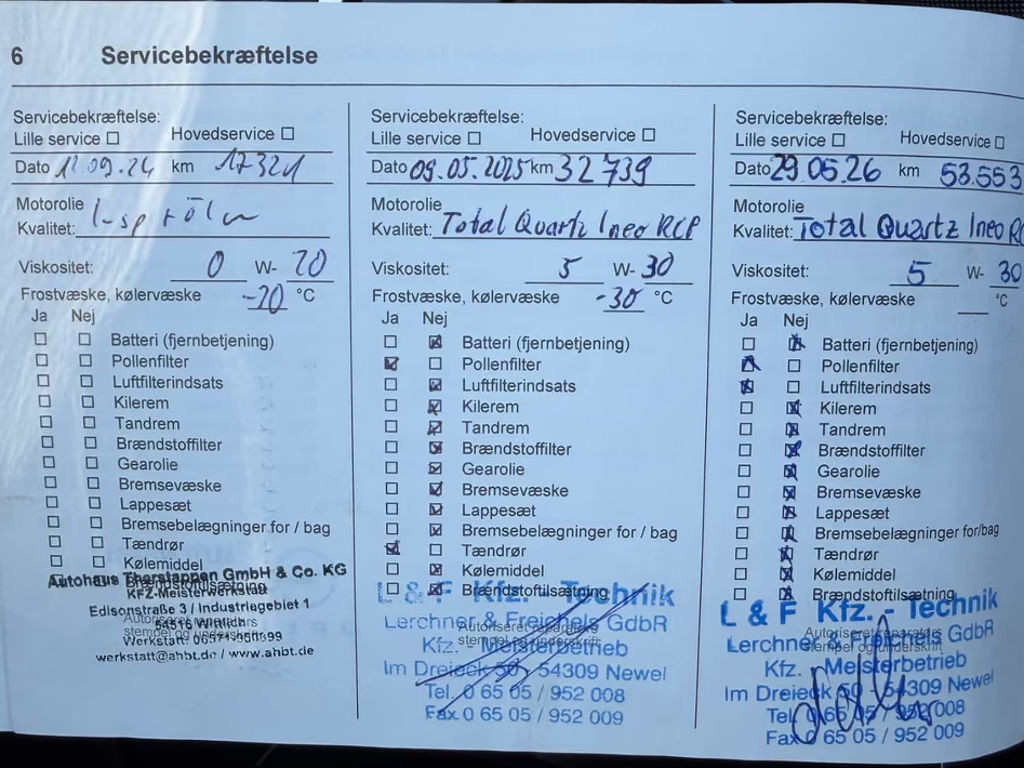 6 Servicebekræftelse
Servicebekræftelse:
Lille service ☐ Hovedservice ☐
Dato 09.24 km 17321
Motorolie
Kvalitet:
Viskositet: 0 W- 20
Frostvæske, kølervæske -20 °C
Ja Nej
☐ ☐ Batteri (fjernbetjening)
☐ ☐ Pollenfilter
☐ ☐ Luftfilterindsats
☐ ☐ Kilerem
☐ ☐ Tandrem
☐ ☐ Brændstoffilter
☐ ☐ Gearolie
☐ ☐ Bremsevæske
☐ ☐ Lappesæt
☐ ☐ Bremsebelægninger for / bag
☐ ☐ Tændrør
☐ ☐ Kølemiddel
Brændstoftilsætning
Autohaus Thorstappen GmbH & Co. KG
KFZ-Meisterwerkstatt
Edisonstraße 3 / Industriegebiet 1
54516 Wittlich
Autoriseret
stempel og underskrift
Werkstatt:
werkstatt@ahbt.de / www.ahbt.de
Servicebekræftelse:
Lille service ☐ Hovedservice ☐
Dato 09.05.2025 km 32739
Motorolie
Kvalitet: Total Quartz Ineo RCP
Viskositet: 5 W- 30
Frostvæske, kølervæske -30 °C
Ja Nej
☐ ☒ Batteri (fjernbetjening)
☒ ☐ Pollenfilter
☐ ☒ Luftfilterindsats
☐ ☒ Kilerem
☐ ☒ Tandrem
☐ ☒ Brændstoffilter
☐ ☒ Gearolie
☐ ☒ Bremsevæske
☐ ☒ Lappesæt
☐ ☒ Bremsebelægninger for / bag
☒ ☐ Tændrør
☐ ☒ Kølemiddel
☐ ☒ Brændstoftilsætning
L & F Kfz. - Technik
Lerchner & Freichels GdbR
Autoriseret reparatørs
stempel og underskrift
Kfz. - Meisterbetrieb
Im Dreieck 50, 54309 Newel
Tel. 0 65 05 / 952 008
Fax 0 65 05 / 952 009
Servicebekræftelse:
Lille service ☐ Hovedservice ☐
Dato 29.05.26 km 53.553
Motorolie
Kvalitet: Total Quartz Ineo
Viskositet: 5 W- 30
Frostvæske, kølervæske °C
Ja Nej
☐ ☒ Batteri (fjernbetjening)
☒ ☐ Pollenfilter
☒ ☐ Luftfilterindsats
☐ ☒ Kilerem
☐ ☒ Tandrem
☐ ☒ Brændstoffilter
☐ ☒ Gearolie
☐ ☒ Bremsevæske
☐ ☒ Lappesæt
☐ ☒ Bremsebelægninger for/bag
☐ ☒ Tændrør
☐ ☒ Kølemiddel
☐ ☒ Brændstoftilsætning
L & F Kfz. - Technik
Lerchner & Freichels GdbR
Autoriseret reparatørs
stempel og underskrift
Kfz. - Meisterbetrieb
Im Dreieck 50, 54309 Newel
Tel. 0 65 05 / 952 008
Fax 0 65 05 / 952 009